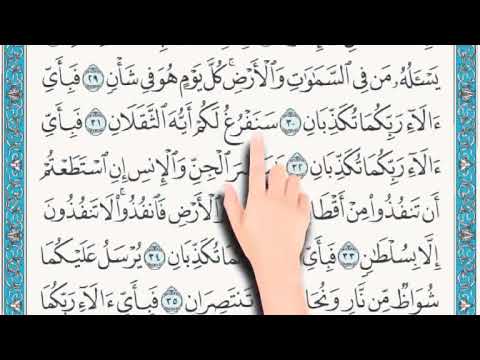 يَسْـَٔلُهُۥ مَن فِى ٱلسَّمَٰوَٰتِ وَٱلْأَرْضِ ۚ كُلَّ يَوْمٍ هُوَ فِى شَأْنٍ ٢٩ فَبِأَىِّ
ءَالَآءِ رَبِّكُمَا تُكَذِّبَانِ ٣٠ سَنَفْرُغُ لَكُمْ أَيُّهَ ٱلثَّقَلَانِ ٣١ فَبِأَىِّ
ءَالَآءِ رَبِّكُمَا تُكَذِّبَانِ ٣٢ ٱلْجِنِّ وَٱلْإِنسِ إِنِ ٱسْتَطَعْتُمْ
أَن تَنفُذُوا۟ مِنْ ٱلْأَرْضِ فَٱنفُذُوا۟ ۚ لَا تَنفُذُونَ
إِلَّا بِسُلْطَٰنٍ ٣٣ فَبِأَىِّ تُكَذِّبَانِ ٣٤ يُرْسَلُ عَلَيْكُمَا
شُوَاظٌ مِّن نَّارٍ تَنتَصِرَانِ ٣٥ فَبِأَىِّ ءَالَآءِ رَبِّكُمَا